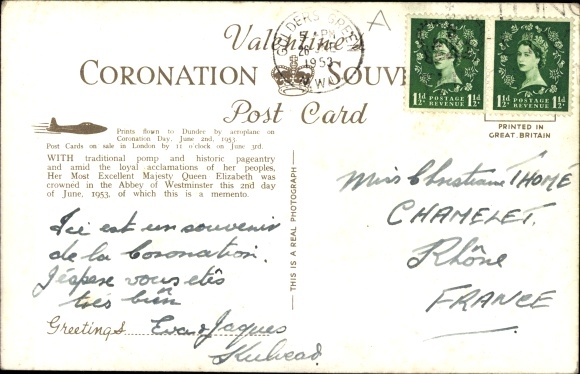 Valentine's
CORONATION SOUV
Post Card
GOLDERS GREEN
1953
N.W.11
1½d POSTAGE REVENUE 1½d
1½d POSTAGE REVENUE 1½d
PRINTED IN
GREAT BRITAIN
Prints flown to Dundee by aeroplane on
Coronation Day, June 2nd, 1953
Post Cards on sale in London by 11 o'clock on June 3rd.
WITH traditional pomp and historic pageantry
and amid the loyal acclamations of her peoples,
Her Most Excellent Majesty Queen Elizabeth was
crowned in the Abbey of Westminster this 2nd day
of June, 1953, of which this is a memento.
THIS IS A REAL PHOTOGRAPH
Ici est un souvenir
de la Coronation.
J'éspere vous etês
très bien
Greetings Eva & Jaques
Miss Christiane THOMÉ
CHAMELET,
Rhône
FRANCE